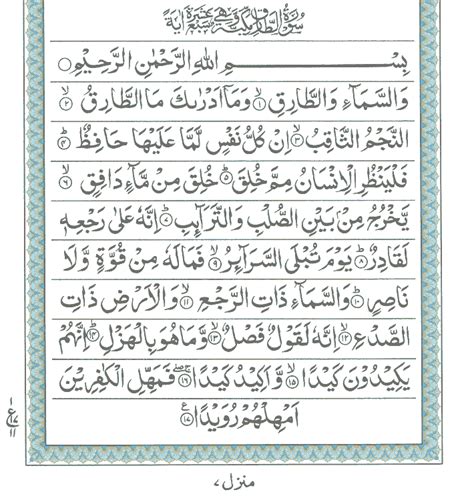 سُوْرَةُ الطَّارِقِ مَكِّيَّةٌ وَّهِيَ سَبْعَ عَشْرَةَ اٰيَةً
بِسْمِ اللهِ الرَّحْمٰنِ الرَّحِيْمِ
وَالسَّمَآءِ وَالطَّارِقِ ۙ﴿۱﴾ وَمَاۤ اَدْرٰىكَ مَا الطَّارِقُ ۙ﴿۲﴾
النَّجْمُ الثَّاقِبُ ۙ﴿۳﴾ اِنْ كُلُّ نَفْسٍ لَّمَّا عَلَيْهَا حَافِظٌ ؕ﴿۴﴾
فَلْيَنْظُرِ الْاِنْسَانُ مِمَّ خُلِقَ ؕ﴿۵﴾ خُلِقَ مِنْ مَّآءٍ دَافِقٍ ۙ﴿۶﴾
يَّخْرُجُ مِنْۢ بَيْنِ الصُّلْبِ وَالتَّرَآئِبِ ؕ﴿۷﴾ اِنَّهٗ عَلٰى رَجْعِهٖ
لَقَادِرٌ ؕ﴿۸﴾ يَوْمَ تُبْلَى السَّرَآئِرُ ۙ﴿۹﴾ فَمَالَهٗ مِنْ قُوَّةٍ وَّلَا
نَاصِرٍ ؕ﴿۱۰﴾ وَالسَّمَآءِ ذَاتِ الرَّجْعِ ۙ﴿۱۱﴾ وَالْاَرْضِ ذَاتِ
الصَّدْعِ ۙ﴿۱۲﴾ اِنَّهٗ لَقَوْلٌ فَصْلٌ ۙ﴿۱۳﴾ وَّمَا هُوَ بِالْهَزْلِ ؕ﴿۱۴﴾ اِنَّهُمْ
يَكِيْدُوْنَ كَيْدًا ۙ﴿۱۵﴾ وَّاَكِيْدُ كَيْدًا ۚۖ﴿۱۶﴾ فَمَهِّلِ الْكٰفِرِيْنَ
اَمْهِلْهُمْ رُوَيْدًا ﴿۱۷﴾ ع
۱
ع ۱۷
۱۱
منزل ۷